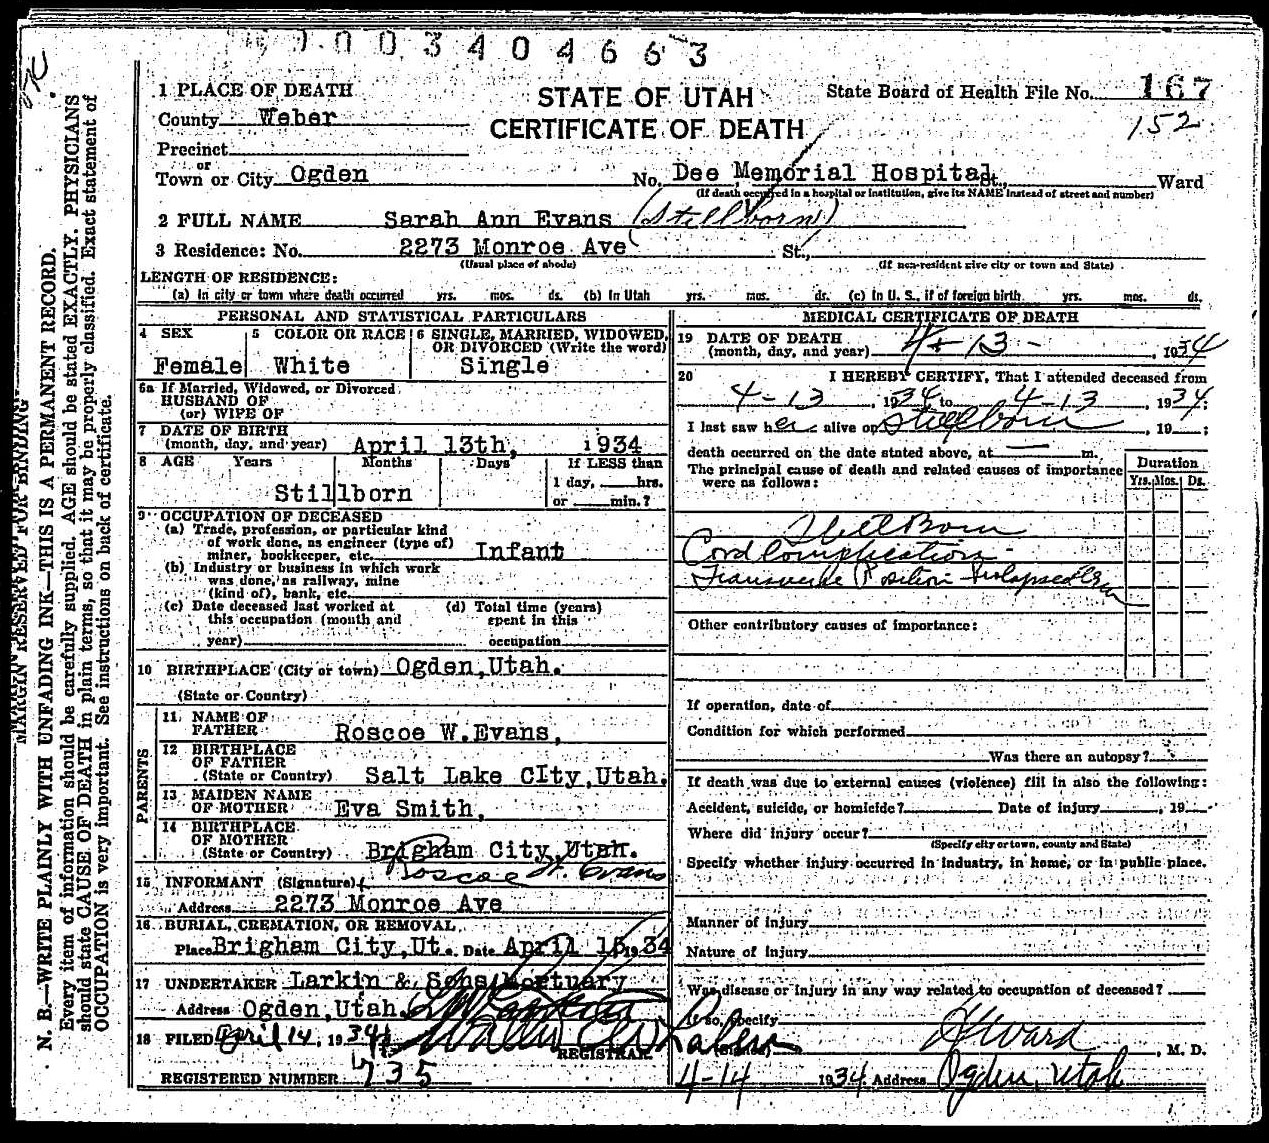 7 0 0 3 4 0 4 6 6 3
1 PLACE OF DEATH
STATE OF UTAH
CERTIFICATE OF DEATH
State Board of Health File No. 167
152
County Weber
Precinct
or
Town or City Ogden No. Dee Memorial Hospital St., Ward
(If death occurred in a hospital or institution, give its NAME instead of street and number)
2 FULL NAME Sarah Ann Evans (Stillborn)
3 Residence: No. 2273 Monroe Ave St.,
(Usual place of abode) (If non-resident give city or town and State)
LENGTH OF RESIDENCE:
(a) In city or town where death occurred yrs. mos. ds. (b) In Utah yrs. mos. ds. (c) In U. S., if of foreign birth yrs. mos. ds.
PERSONAL AND STATISTICAL PARTICULARS
4 SEX
Female
5 COLOR OR RACE
White
6 SINGLE, MARRIED, WIDOWED, OR DIVORCED (Write the word)
Single
6a If Married, Widowed, or Divorced
HUSBAND OF
(or) WIFE OF
7 DATE OF BIRTH
(month, day, and year) April 13th, 1934
8 AGE Years Months Days If LESS than
1 day, hrs.
Stillborn or min.?
9 OCCUPATION OF DECEASED
(a) Trade, profession, or particular kind
of work done, as engineer (type of)
miner, bookkeeper, etc. Infant
(b) Industry or business in which work
was done, as railway, mine
(kind of), bank, etc.
(c) Date deceased last worked at (d) Total time (years)
this occupation (month and spent in this
year) occupation
10 BIRTHPLACE (City or town) Ogden, Utah.
(State or Country)
PARENTS
11. NAME OF
FATHER Roscoe W. Evans,
12 BIRTHPLACE
OF FATHER
(State or Country) Salt Lake CIty, Utah.
13 MAIDEN NAME
OF MOTHER Eva Smith,
14 BIRTHPLACE
OF MOTHER
(State or Country) Brigham City, Utah.
15 INFORMANT (Signature) Roscoe W. Evans
Address 2273 Monroe Ave
16 BURIAL, CREMATION, OR REMOVAL
Place Brigham City, Ut. Date April 15, 1934
17 UNDERTAKER Larkin & Sons Mortuary
Address Ogden, Utah
18 FILED April 14, 1934
REGISTRAR.
REGISTERED NUMBER 735
MEDICAL CERTIFICATE OF DEATH
19 DATE OF DEATH
(month, day, and year) 4-13-, 1934
20 I HEREBY CERTIFY, That I attended deceased from
4-13, 1934, to 4-13, 1934;
I last saw her alive on Stillborn, 19 ;
death occurred on the date stated above, at — m.
The principal cause of death and related causes of importance
were as follows:
Duration
Yrs. Mos. Ds.
Still Born
Cord Complication
Transverse Position Prolapsed
Other contributory causes of importance:
If operation, date of
Condition for which performed
Was there an autopsy?
If death was due to external causes (violence) fill in also the following:
Accident, suicide, or homicide? Date of injury , 19
Where did injury occur?
(Specify city or town, county and State)
Specify whether injury occurred in industry, in home, or in public place.
Manner of injury
Nature of injury
Was disease or injury in any way related to occupation of deceased?
If so, specify
(Signed) Ward, M. D.
4-14 1934 Address Ogden, Utah
MARGIN RESERVED FOR BINDING
N. B.—WRITE PLAINLY WITH UNFADING INK—THIS IS A PERMANENT RECORD.
Every item of information should be carefully supplied. AGE should be stated EXACTLY. PHYSICIANS
should state CAUSE OF DEATH in plain terms, so that it may be properly classified. Exact statement of
OCCUPATION is very important. See instructions on back of certificate.